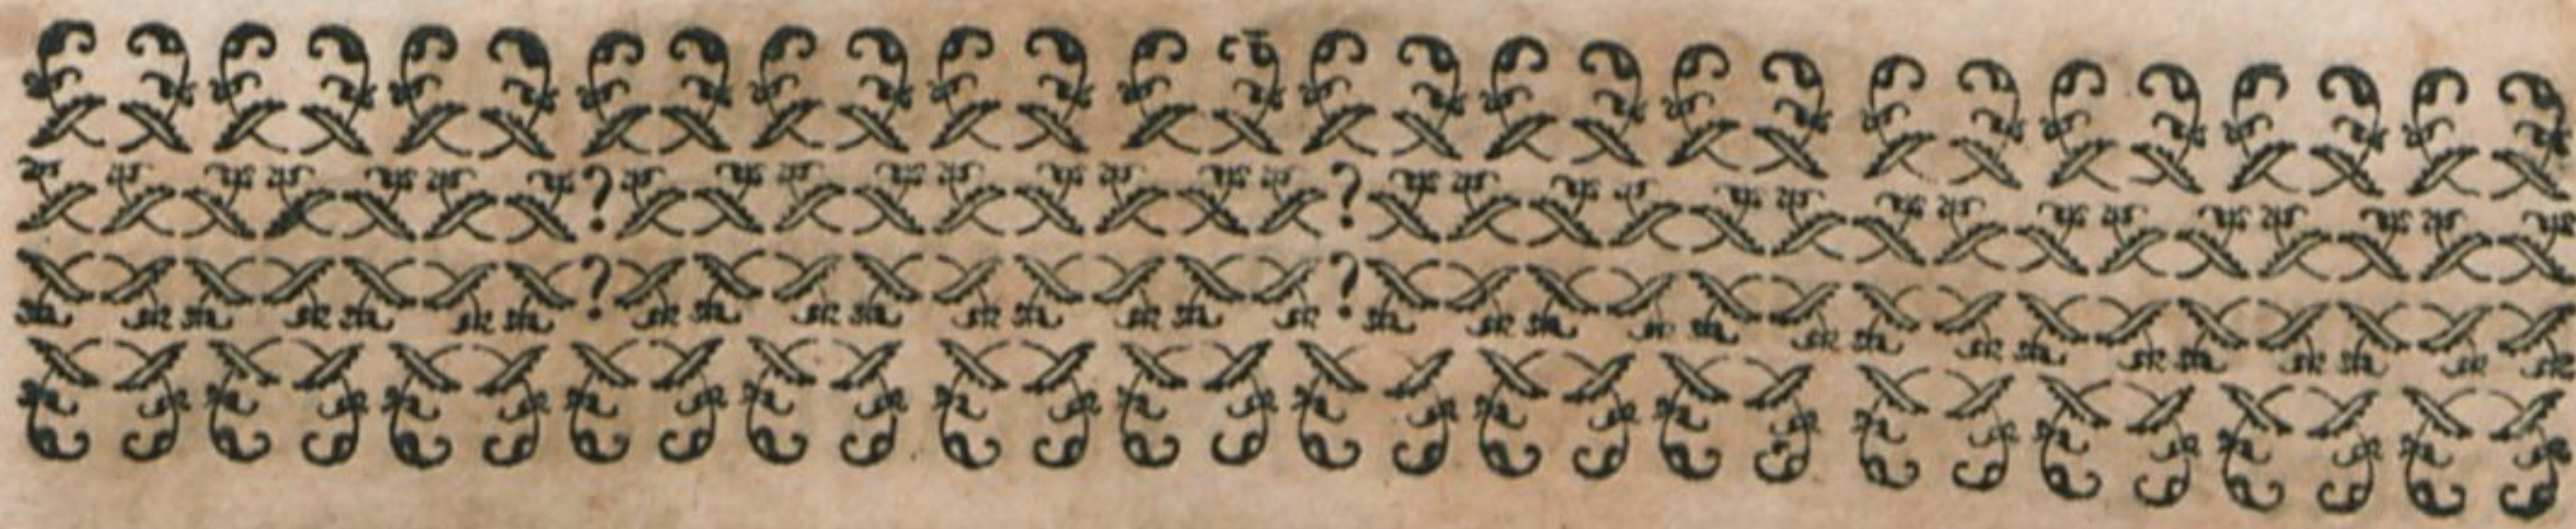 ? ?
? ?